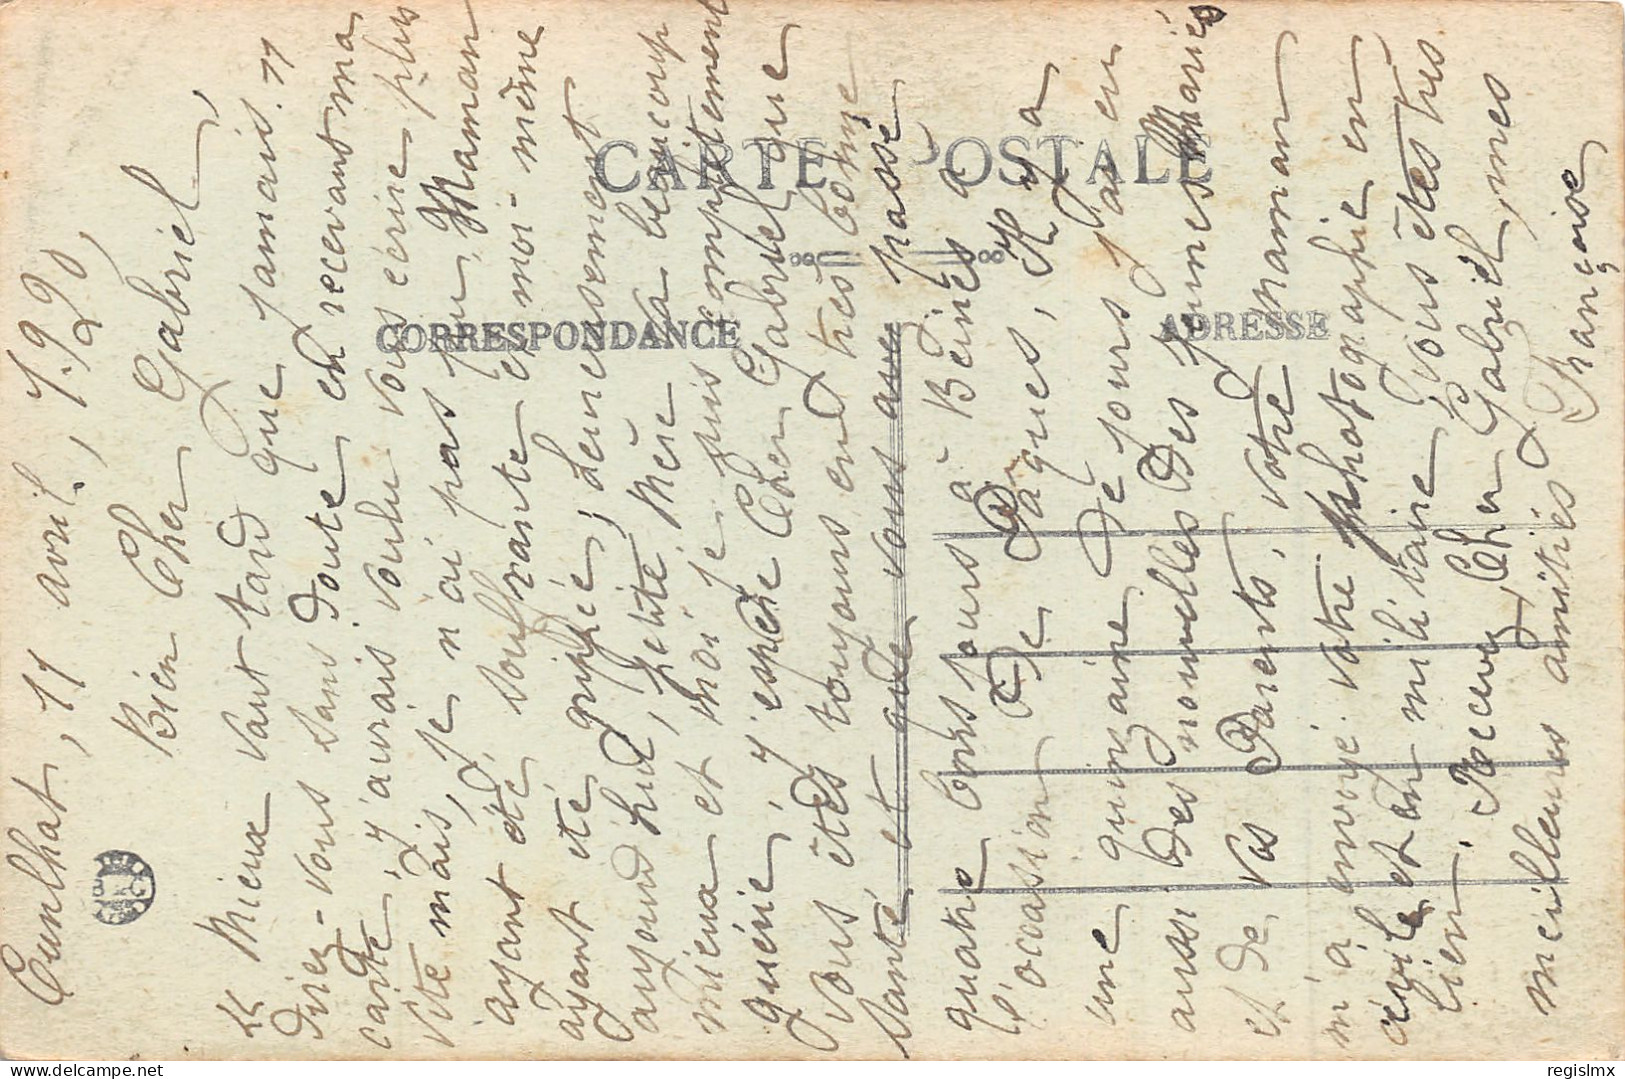 Cunlhat, 11 avril, 1.920,
Bien Cher Gabriel,
" Mieux vaut tard que jamais. "
direz-vous sans doute en recevant ma
carte, j'aurais voulu vous écrire plus
vite mais, je n'ai pas pu, Maman
ayant été souffrante et moi-même
ayant été grippée, heureusement
aujourd'hui, Petite Mère va beaucoup
mieux et moi je suis complètement
guérie, j'espère Cher Gabriel que
vous êtes toujours en très bonne
santé et que vous avez passé
quatre bons jours à Beines à
l'occasion de Pâques, Il y a
une quinzaine de jours j'ai eu
aussi des nouvelles des jeunes Mariés
et de vos Parents, votre maman
m'a envoyé votre photographie en
civile et en militaire, vous êtes très
bien. Recevez, Cher Gabriel, mes
meilleures amitiés
Françoise
CARTE POSTALE
CORRESPONDANCE
ADRESSE
delcampe.net
regislmx